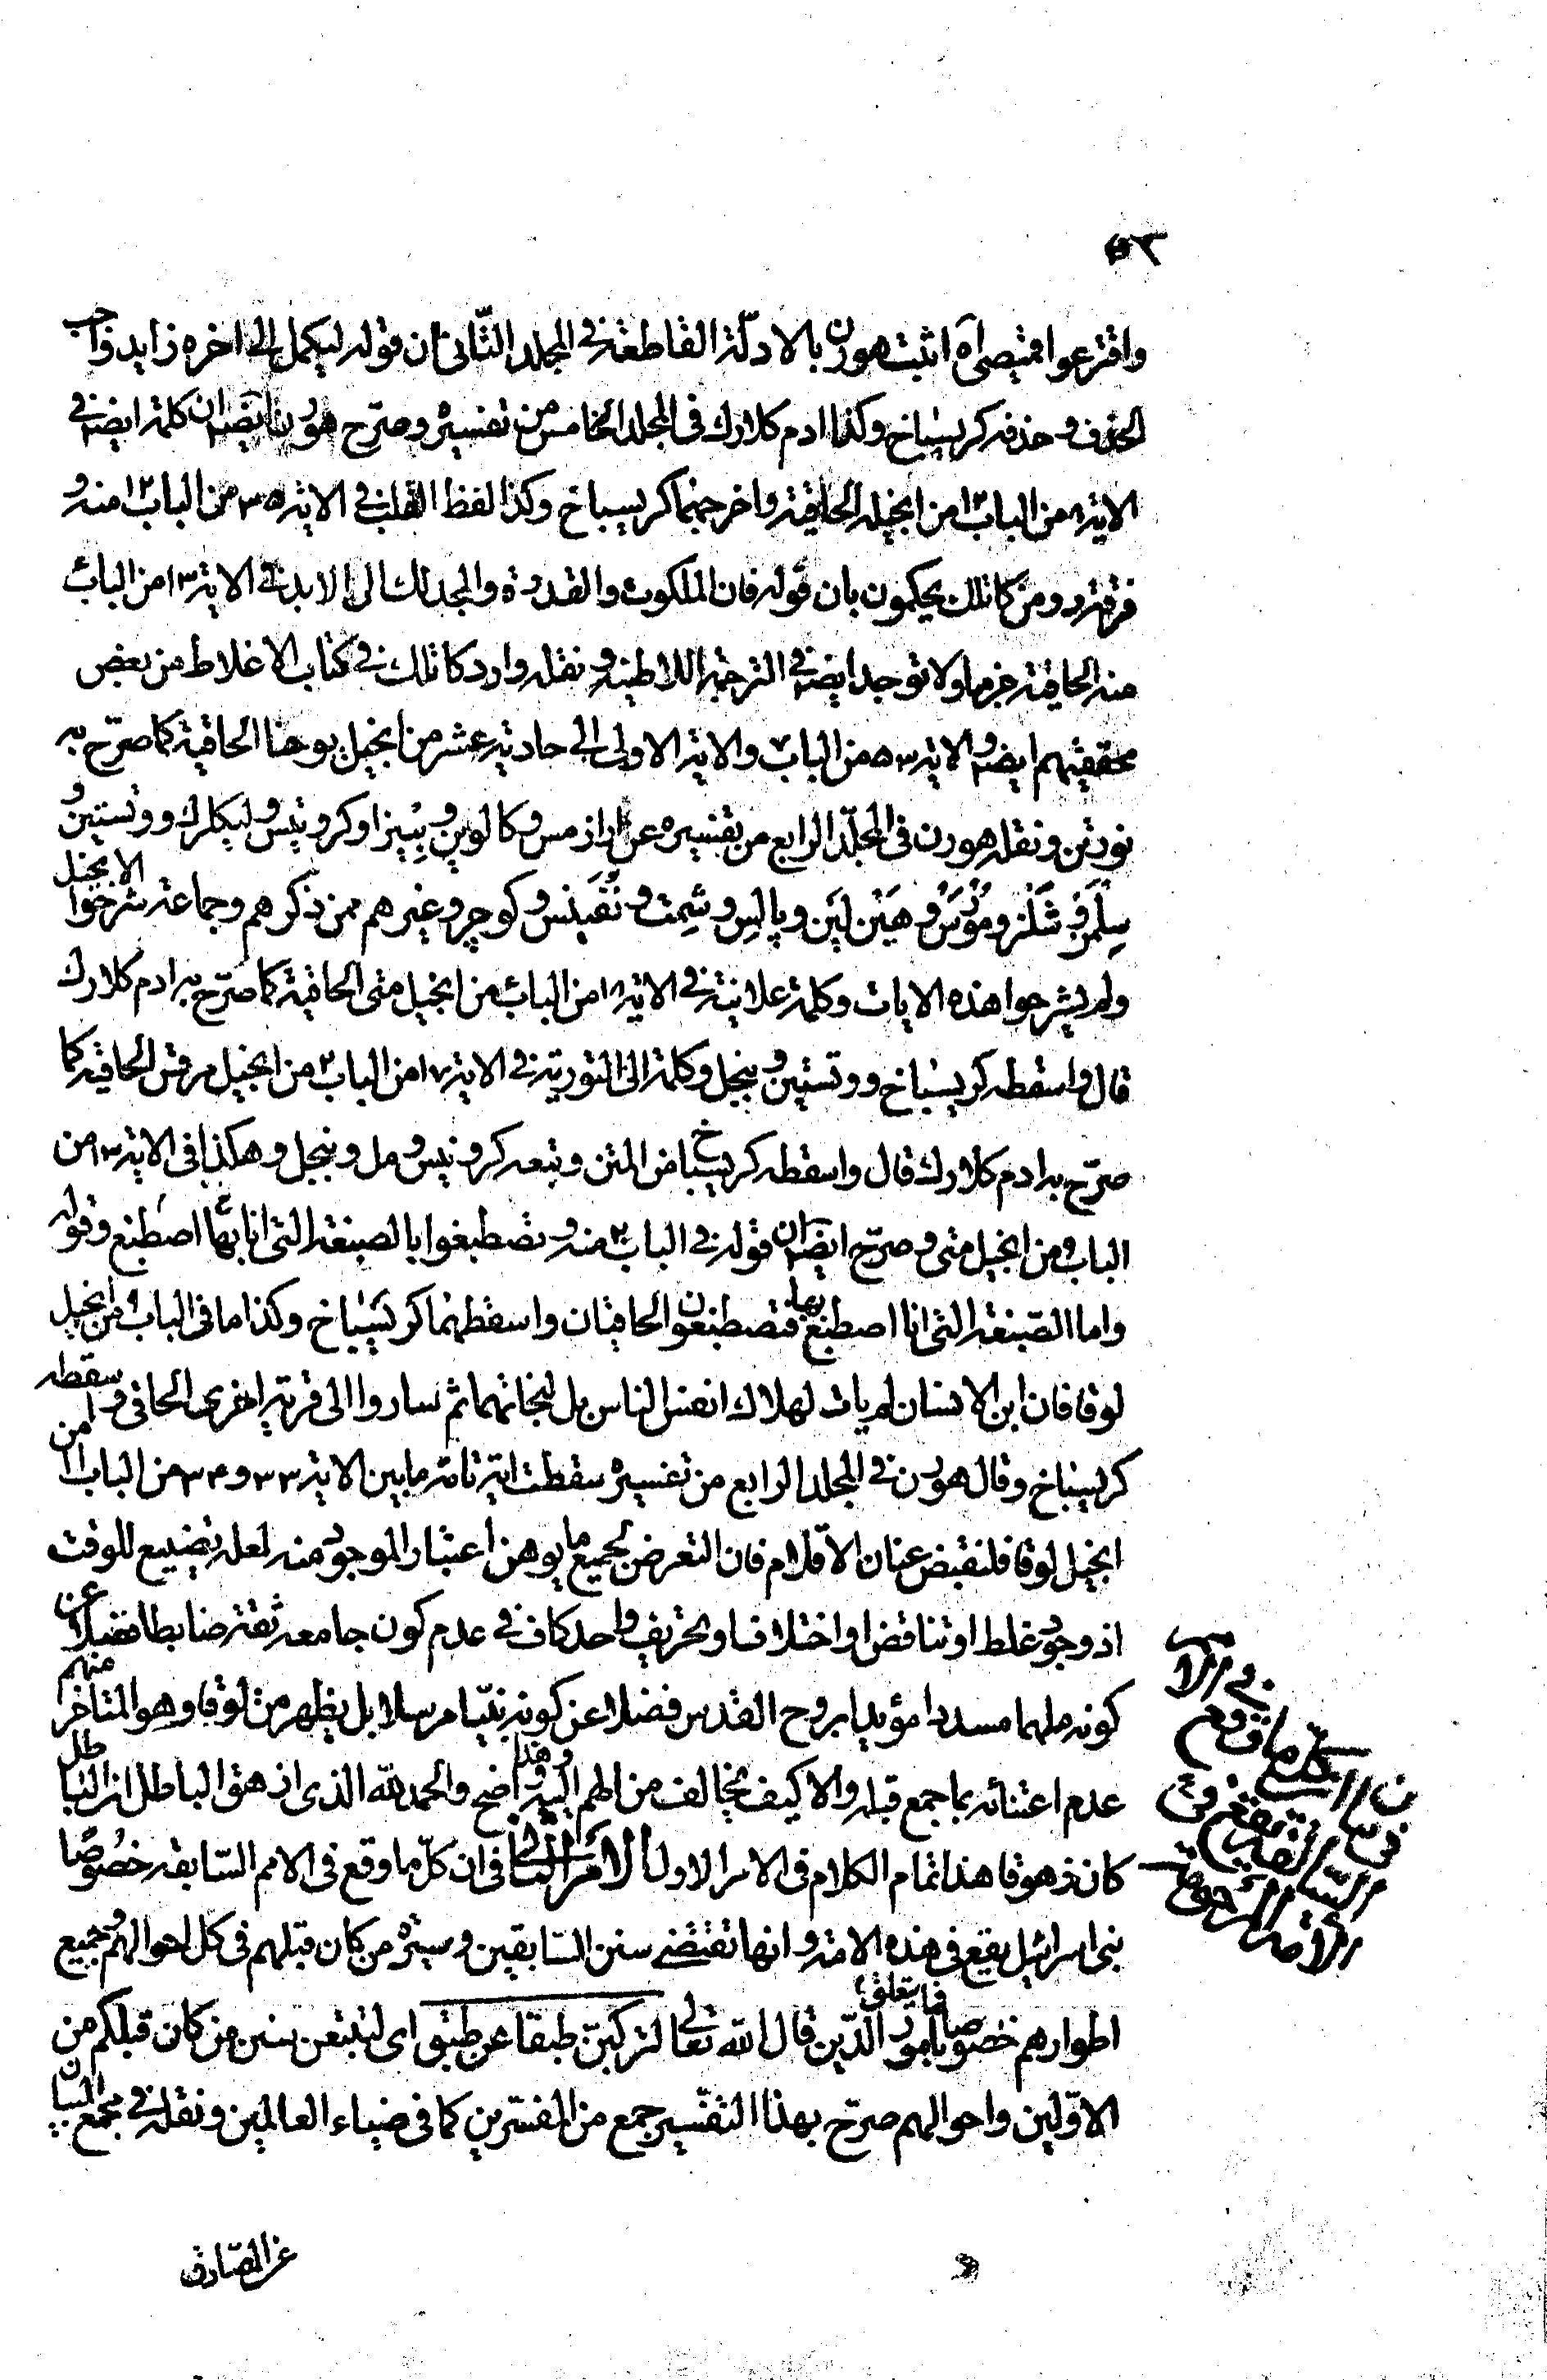 ٥٢
واقترعوا قميصي آه اثبت هورن بالادلّة القاطعة في المجلد الثّاني ان قوله ليكمل الى اخره زايد واجب
الحذف وحذفه كريسباخ وكذا ادم كلارك في المجلد الخامس من تفسيره وصرّح هورن ايضا ان كلمة ايضا في
الاية ٨ من الباب ١٢ من انجيله الحاقية واخرجها كريسباخ وكذا لفظ القلب في الاية ٣٥ من الباب ١٢ منه و
فرقة رومن كاتلك يحكمون بان قوله فان الملكوت والقدرة والمجد لك الى الابد في الاية ١٣ من الباب ٦
منه الحاقية جزما ولا توجد ايضا في الترجمة اللاطينية ونقله وارد كاتلك في كتاب الاغلاط من بعض
محققيهم ايضا والاية ٥٣ من الباب ٧ والاية الاولى الى حادية عشر من انجيل يوحنا الحاقية كما صرّح به
نورتن ونقله هورن في المجلّد الرابع من تفسيره عن ارازمس وكالوين وبيزا وكروتيس وليكلرك ووتستين و
سلمر وشلز ومورس وهين لين وپالس وشمت و وكوچر وغيرهم ممن ذكرهم وجماعة شرحوا الانجيل
ولم يشرحوا هذه الايات وكلمة علانية في الاية ١٨ من الباب ٦ من انجيل متى الحاقية كما صرّح به ادم كلارك
قال واسقطه كريسباخ ووتستين وبنجل وكلمة الى التوبة في الاية ١٧ من الباب ٢ من انجيل مرقس الحاقية كما
صرّح به ادم كلارك قال واسقطه كريسباخ من المتن وتبعه كروتيس ومل وبنجل وهكذا في الاية ١٣ من
الباب ٩ من انجيل متى وصرّح ايضا ان قوله في الباب ٢٠ منه وتصطبغوا بالصبغة التي انا بها اصطبغ وقوله
واما الصّبغة التي انا اصطبغ بها فتصطبغون الحاقيان واسقطهما كريسباخ وكذا ما في الباب ٩ من انجيل
لوقا فان ابن الانسان لم يات لهلاك انفس الناس بل لنجاتهما ثم ساروا الى قرية اخرى الحاقي واسقطه
كريسباخ وقال هورن في المجلد الرابع من تفسيره سقطت اية تامة ما بين الاية ٣٣ و ٣٤ من الباب ٢١ من
انجيل لوقا فلنقبض عنان الاقلام فان التعرض لجميع ما يوهن اعتبار الموجود منه لعله تضييع للوقت
اذ وجود غلط او تناقض او اختلاف او تحريف واحد كاف في عدم كون جامعه ثقة ضابطا فضلا عن
كونه ملهما مسددا مؤيدا بروح القدس فضلا عن كونه نبيّا مرسلا بل يظهر من لوقا وهو المتاخر منهم
عدم اعتنائه بما جمع قبله والا كيف يخالف من الهم اليه وهذا واضح والحمد لله الذي ازهق الباطل ان الباطل
كان زهوقا هذا تمام الكلام في الامر الاول الامر الثاني في ان كلّ ما وقع في الامم السّابقة خصوصًا
بني اسرائيل يقع في هذه الامة وانها تقتضي سنن السّابقين وسيرة من كان قبلهم في كل احوالهم وجميع
اطوارهم خصوصا فيما يتعلق بامور الدّين قال الله تعالى لتركبنّ طبقا عن طبق اي لتتبعن سنن من كان قبلكم من
الاوّلين واحوالهم صرّح بهذا التفسير جمع من المفسّرين كما في ضياء العالمين ونقله في مجمع البيان
في ان كل ما وقع في الامم السابقة يقع في هذه الامة
عن الصّادق